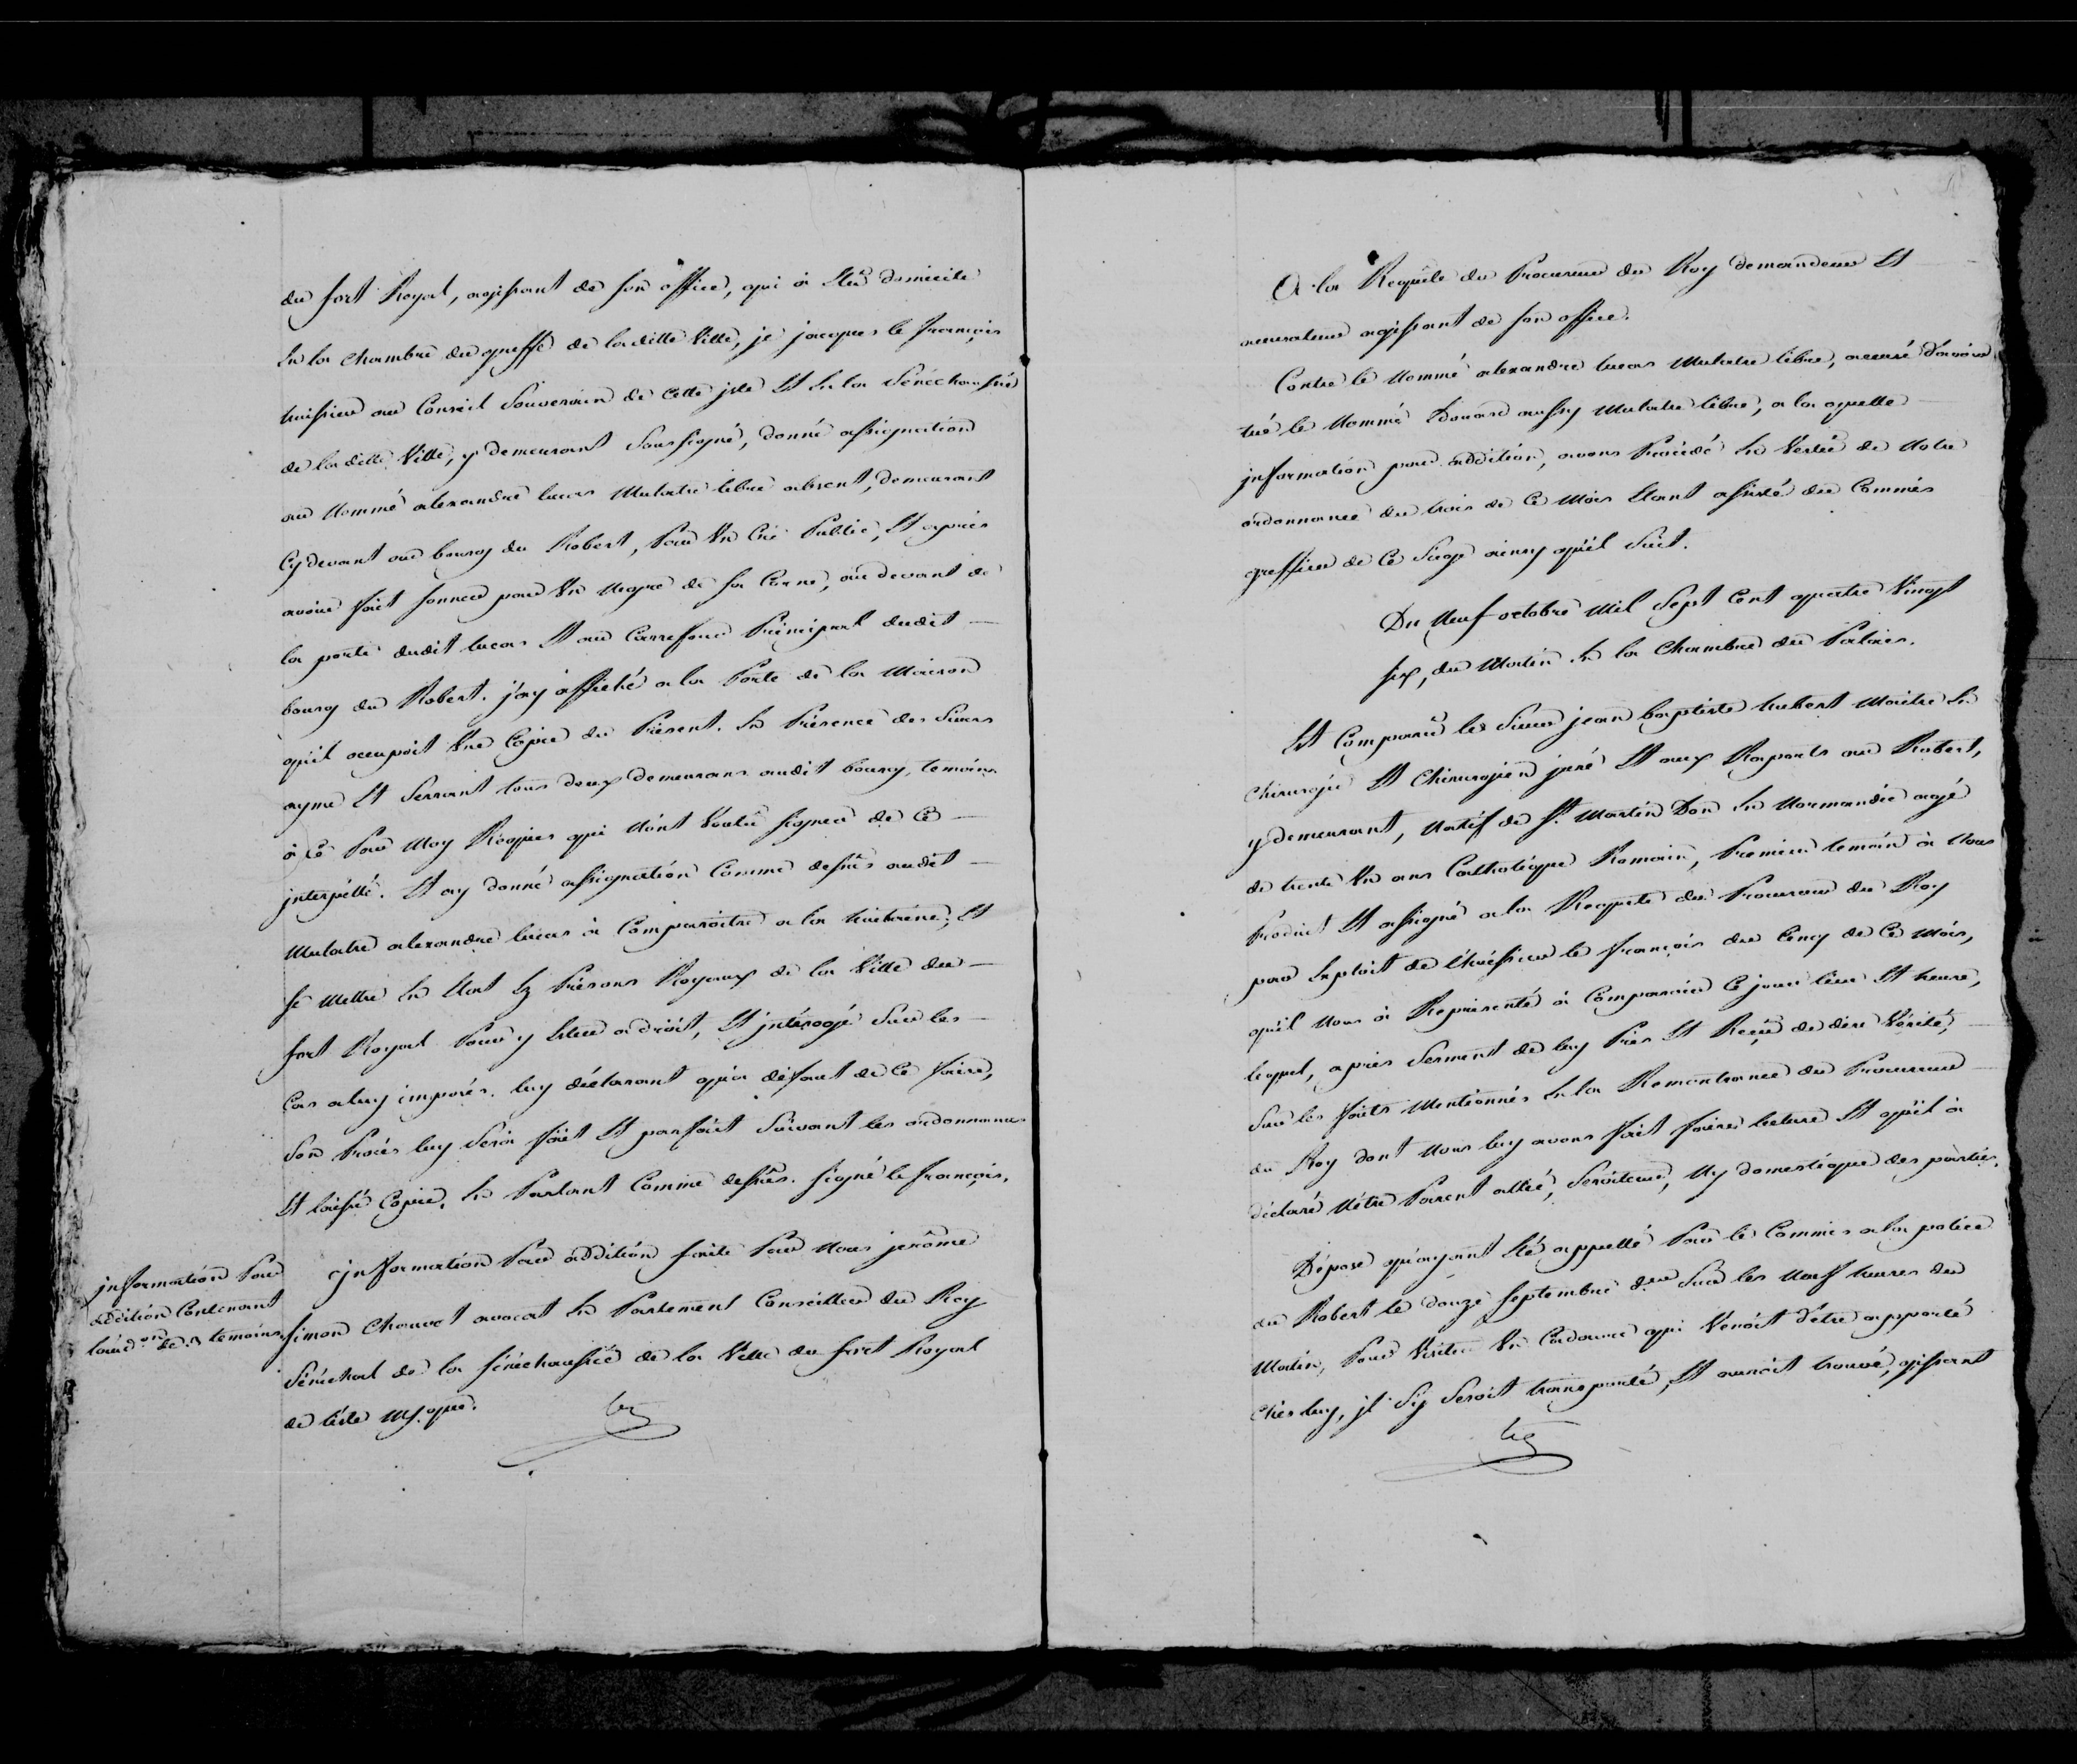 du fort Royal, agissant de son office, qui a Elu domicile
En la chambre du greffe de laditte Ville, je jacques le françois
huissier au Conseil Souverain de Cette jsle Et En la Sénéchaussée
de laditte Ville, y demeurant Soussigné, donné assignation
au Nommé alexandre lucas Mulatre libre absent, demeurant
Cydevant au bourg du Robert, Par Un Cri Public, Et après
avoir fait sonner par Un Negre de sa Corne, au devant de
la porte dudit lucas Et au Carrefour Principal dudit
bourg du Robert. j'ay affiché a la Porte de la Maison
qu'il occupoit Une Copie du Présent. En Présence des Sieurs
aymé Et Serrant tous deux demeurans audit bourg, temoins
à Ce Par Moy Requis qui N'ont Voulu signer de Ce
jnterpellé. Et ay donné assignation Comme dessus audit
Mulatre alexandre lucas à Comparoitre a la huitaine, Et
Se Mettre En Etat Ez Prisons Royaux de la Ville du
fort Royal Pour y Ester a droit, Et jntérogé Sur les
Cas a luy imposés. luy déclarant qu'a défaut de Ce faire,
Son Procès luy Sera fait Et parfait Suivant les ordonnances
Et laissé Copie, En Parlant Comme dessus. signé le françois.
jnformation Par
addition Contenant
l'aud.on de temoins.
jnformation Par addition faite Par Nous jerôme
Simon Chauvot avocat En Parlement Conseiller du Roy
Sénéchal de la Sénéchaussée de la Ville du fort Royal
de l'isle M/que.
A la Requête du Procureur du Roy demandeur Et
accusateur agissant de son office.
Contre le Nommé alexandre lucas Mulatre libre, accusé d'avoir
tué le Nommé Edouard aussy Mulatre libre, a la quelle
jnformation par addition, avons Procédé En Vertu de Notre
ordonnance du trois de Ce Mois Etant assisté du Commis
greffier de Ce Siege ainsy qu'il Suit.
Du Neuf octobre Mil Sept Cent quatre Vingt
Six, du Matin En la Chambre du Palais.
Est Comparu le Sieur jean baptiste hubert Maitre En
Chirurgie Et Chirurgien juré Et aux Raports au Robert,
y demeurant, Natif de St. Martin Don En Normandie agé
de trente Un ans Catholique Romain, Premier temoin à Nous
Produit Et assigné a la Requete du Procureur du Roy
par Exploit de L'huissier le françois du Cinq de Ce Mois,
qu'il Nous à Représenté à Comparoir Ce jour lieu Et heure,
lequel, après Serment de luy Pris Et Reçu de dire Vérité,
Sur les faits Mentionnés En la Remontrance du Procureur
du Roy dont Nous luy avons fait faire lecture Et qu'il à
déclaré N'être Parent allié, Serviteur, Ny domestique des parties.
Dépose qu'ayant Eté appellé Par le Commis a la police
du Robert le douze Septembre d.er Sur les Neuf heures du
Matin, Pour Visiter Un Cadavre qui Venoit d'être apporté
chès luy, jl S'y Seroit transporté, Et auroit trouvé, gissant